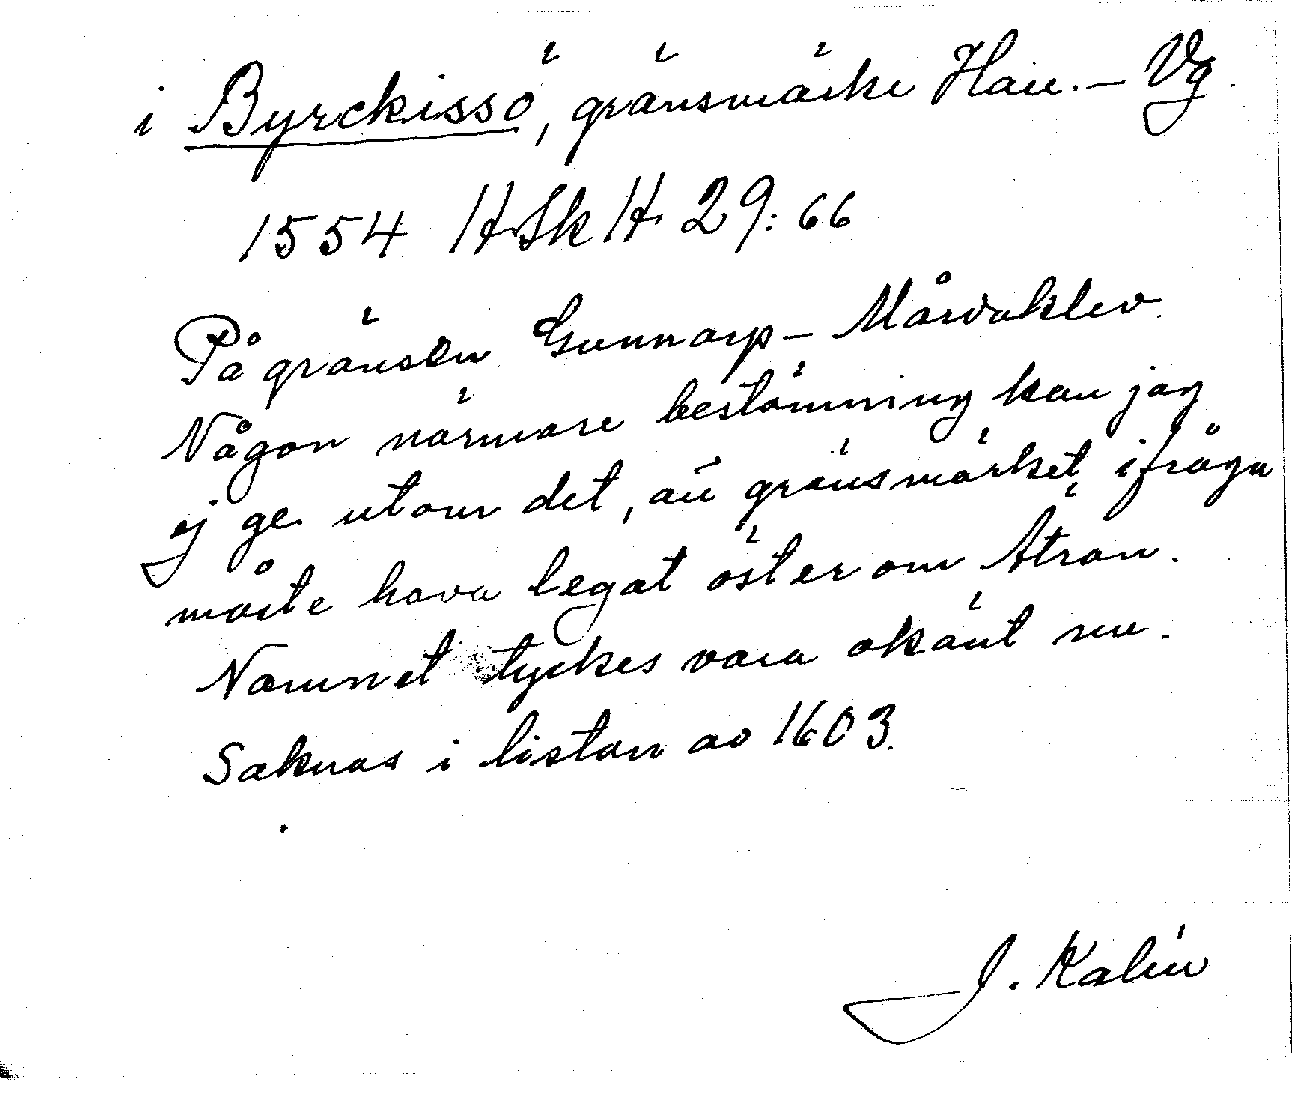 i Byrckissö, gränsmärke Hall.–Vg.
1554 HSkH 29:66
På gränsen Gunnarp–Mårdaklev.
Någon närmare bestämning kan jag
ej ge utom det, att gränsmärket ifråga
måste hava legat öster om Ätran.
Namnet tyckes vara okänt nu.
Saknas i listan av 1603.
J. Kalén